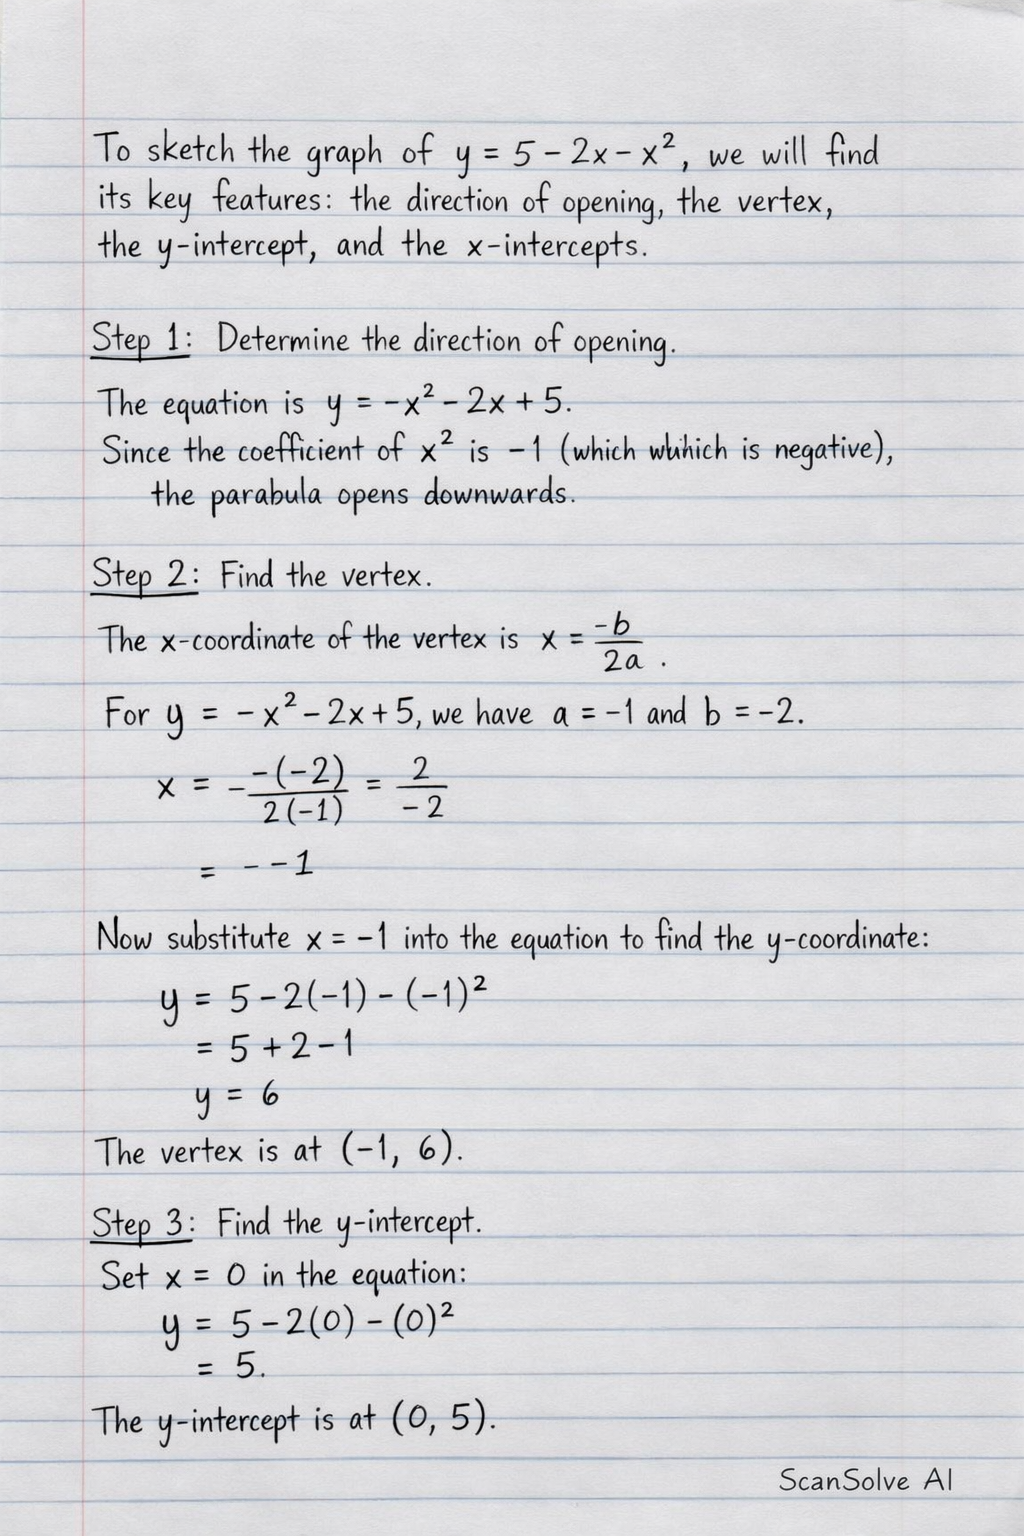 To sketch the graph of y = 5 - 2x - x², we will find
its key features: the direction of opening, the vertex,
the y-intercept, and the x-intercepts.
Step 1: Determine the direction of opening.
The equation is y = -x² - 2x + 5.
Since the coefficient of x² is -1 (which is negative),
the parabula opens downwards.
Step 2: Find the vertex.
The x-coordinate of the vertex is x = -b/2a .
For y = -x² - 2x + 5, we have a = -1 and b = -2.
x = - -(-2)/2(-1) = 2/-2
= - -1
Now substitute x = -1 into the equation to find the y-coordinate:
y = 5 - 2(-1) - (-1)²
= 5 + 2 - 1
y = 6
The vertex is at (-1, 6).
Step 3: Find the y-intercept.
Set x = 0 in the equation:
y = 5 - 2(0) - (0)²
= 5.
The y-intercept is at (0, 5).
ScanSolve AI